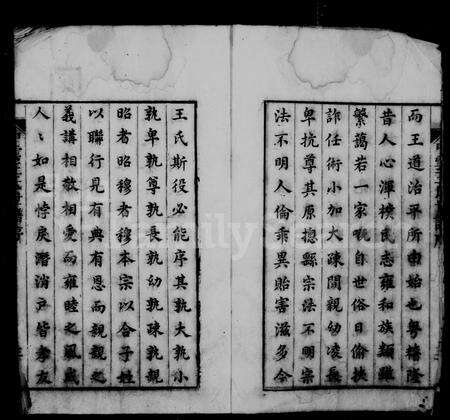 而王道治平所由始也粤稽隆
昔人心渾樸民志雍和族類雖
繁藹若一家洎自世俗日偷挾
詐任術小加大疎間親幼凌長
卑抗尊其原揔緣宗法不明宗
法不明人倫乖異貽害滋多今
王氏斯役必能序其孰大孰小
孰卑孰尊孰長孰幼孰疎孰親
昭者昭穆者穆本宗以合子姓
以聯行見有典有恩而親親之
義講相敬相愛而雍睦之風成
人人如是悖戾潛消戸皆孝友